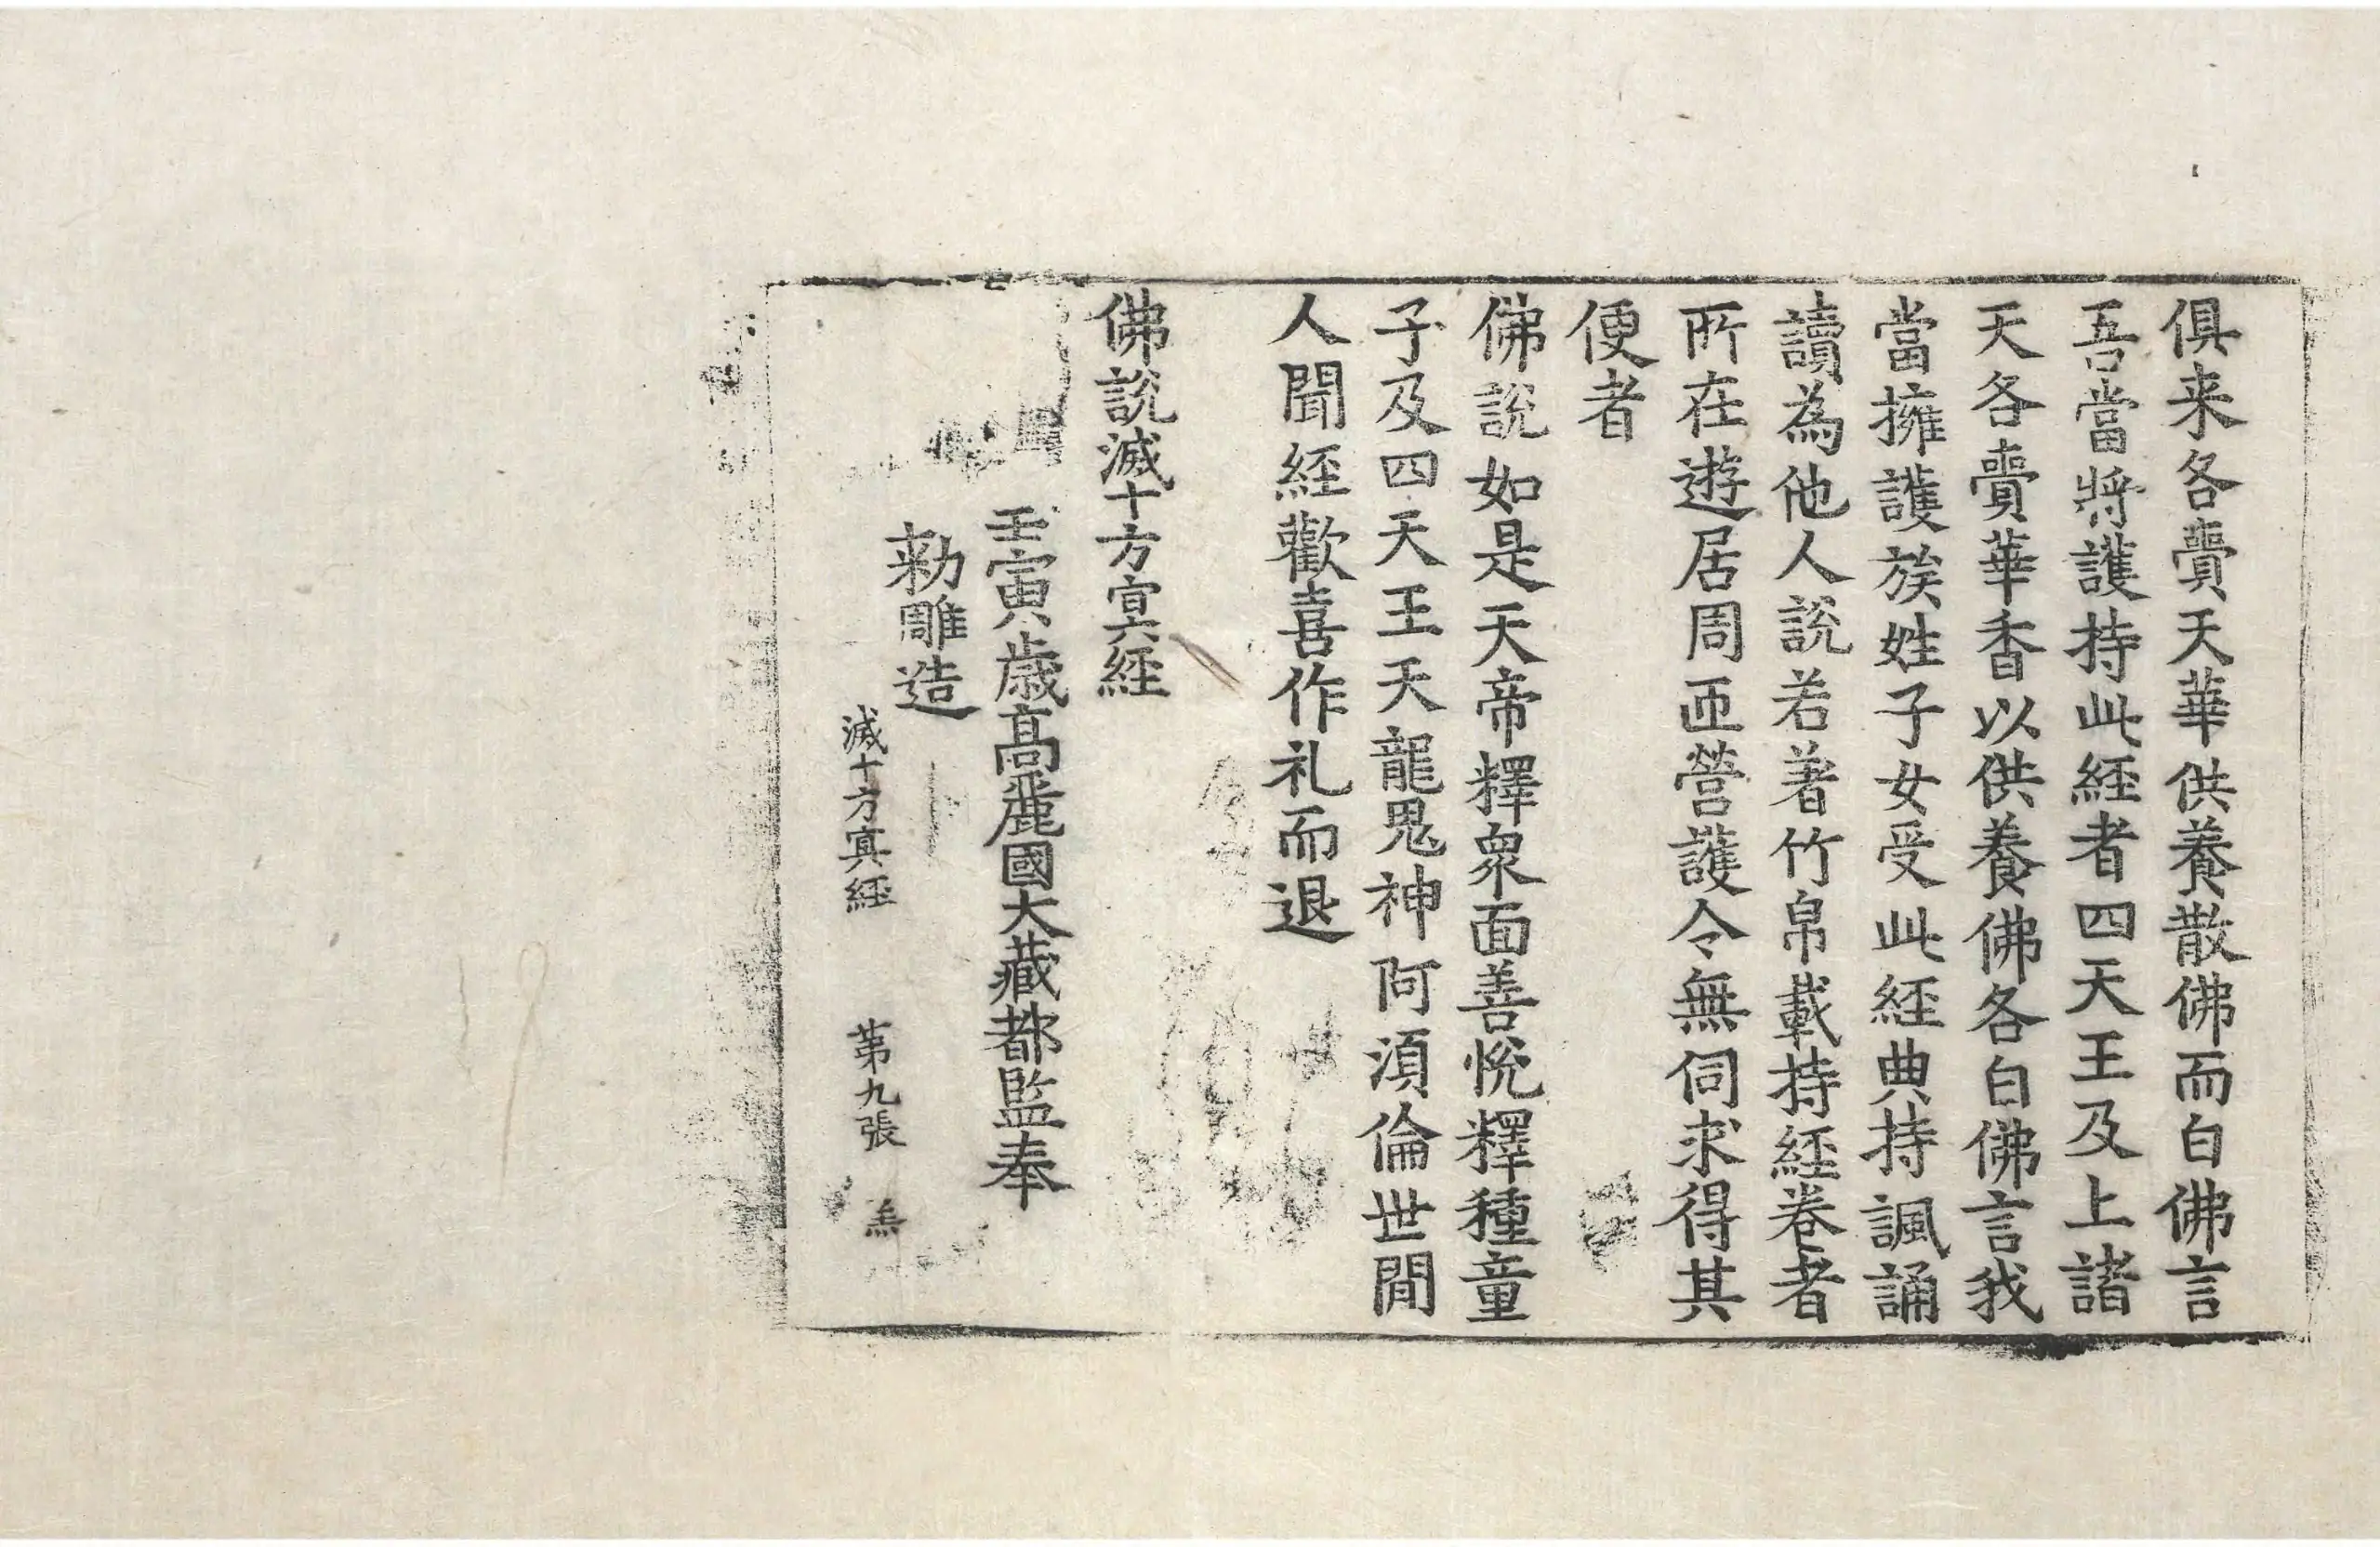 俱来各賷天華供養散佛而白佛言
吾當將護持此経者四天王及上諸
天各賷華香以供養佛各白佛言我
當擁護族姓子女受此経典持諷誦
讀為他人說若著竹帛載持経卷者
所在遊居周匝營護令無伺求得其
便者
佛說如是天帝釋衆面善悅釋種童
子及四天王天龍鬼神阿須倫世間
人聞経歡喜作礼而退
佛說滅十方冥経
壬寅歳高麗國大藏都監奉
勑雕造
滅十方冥経 第九張 羔